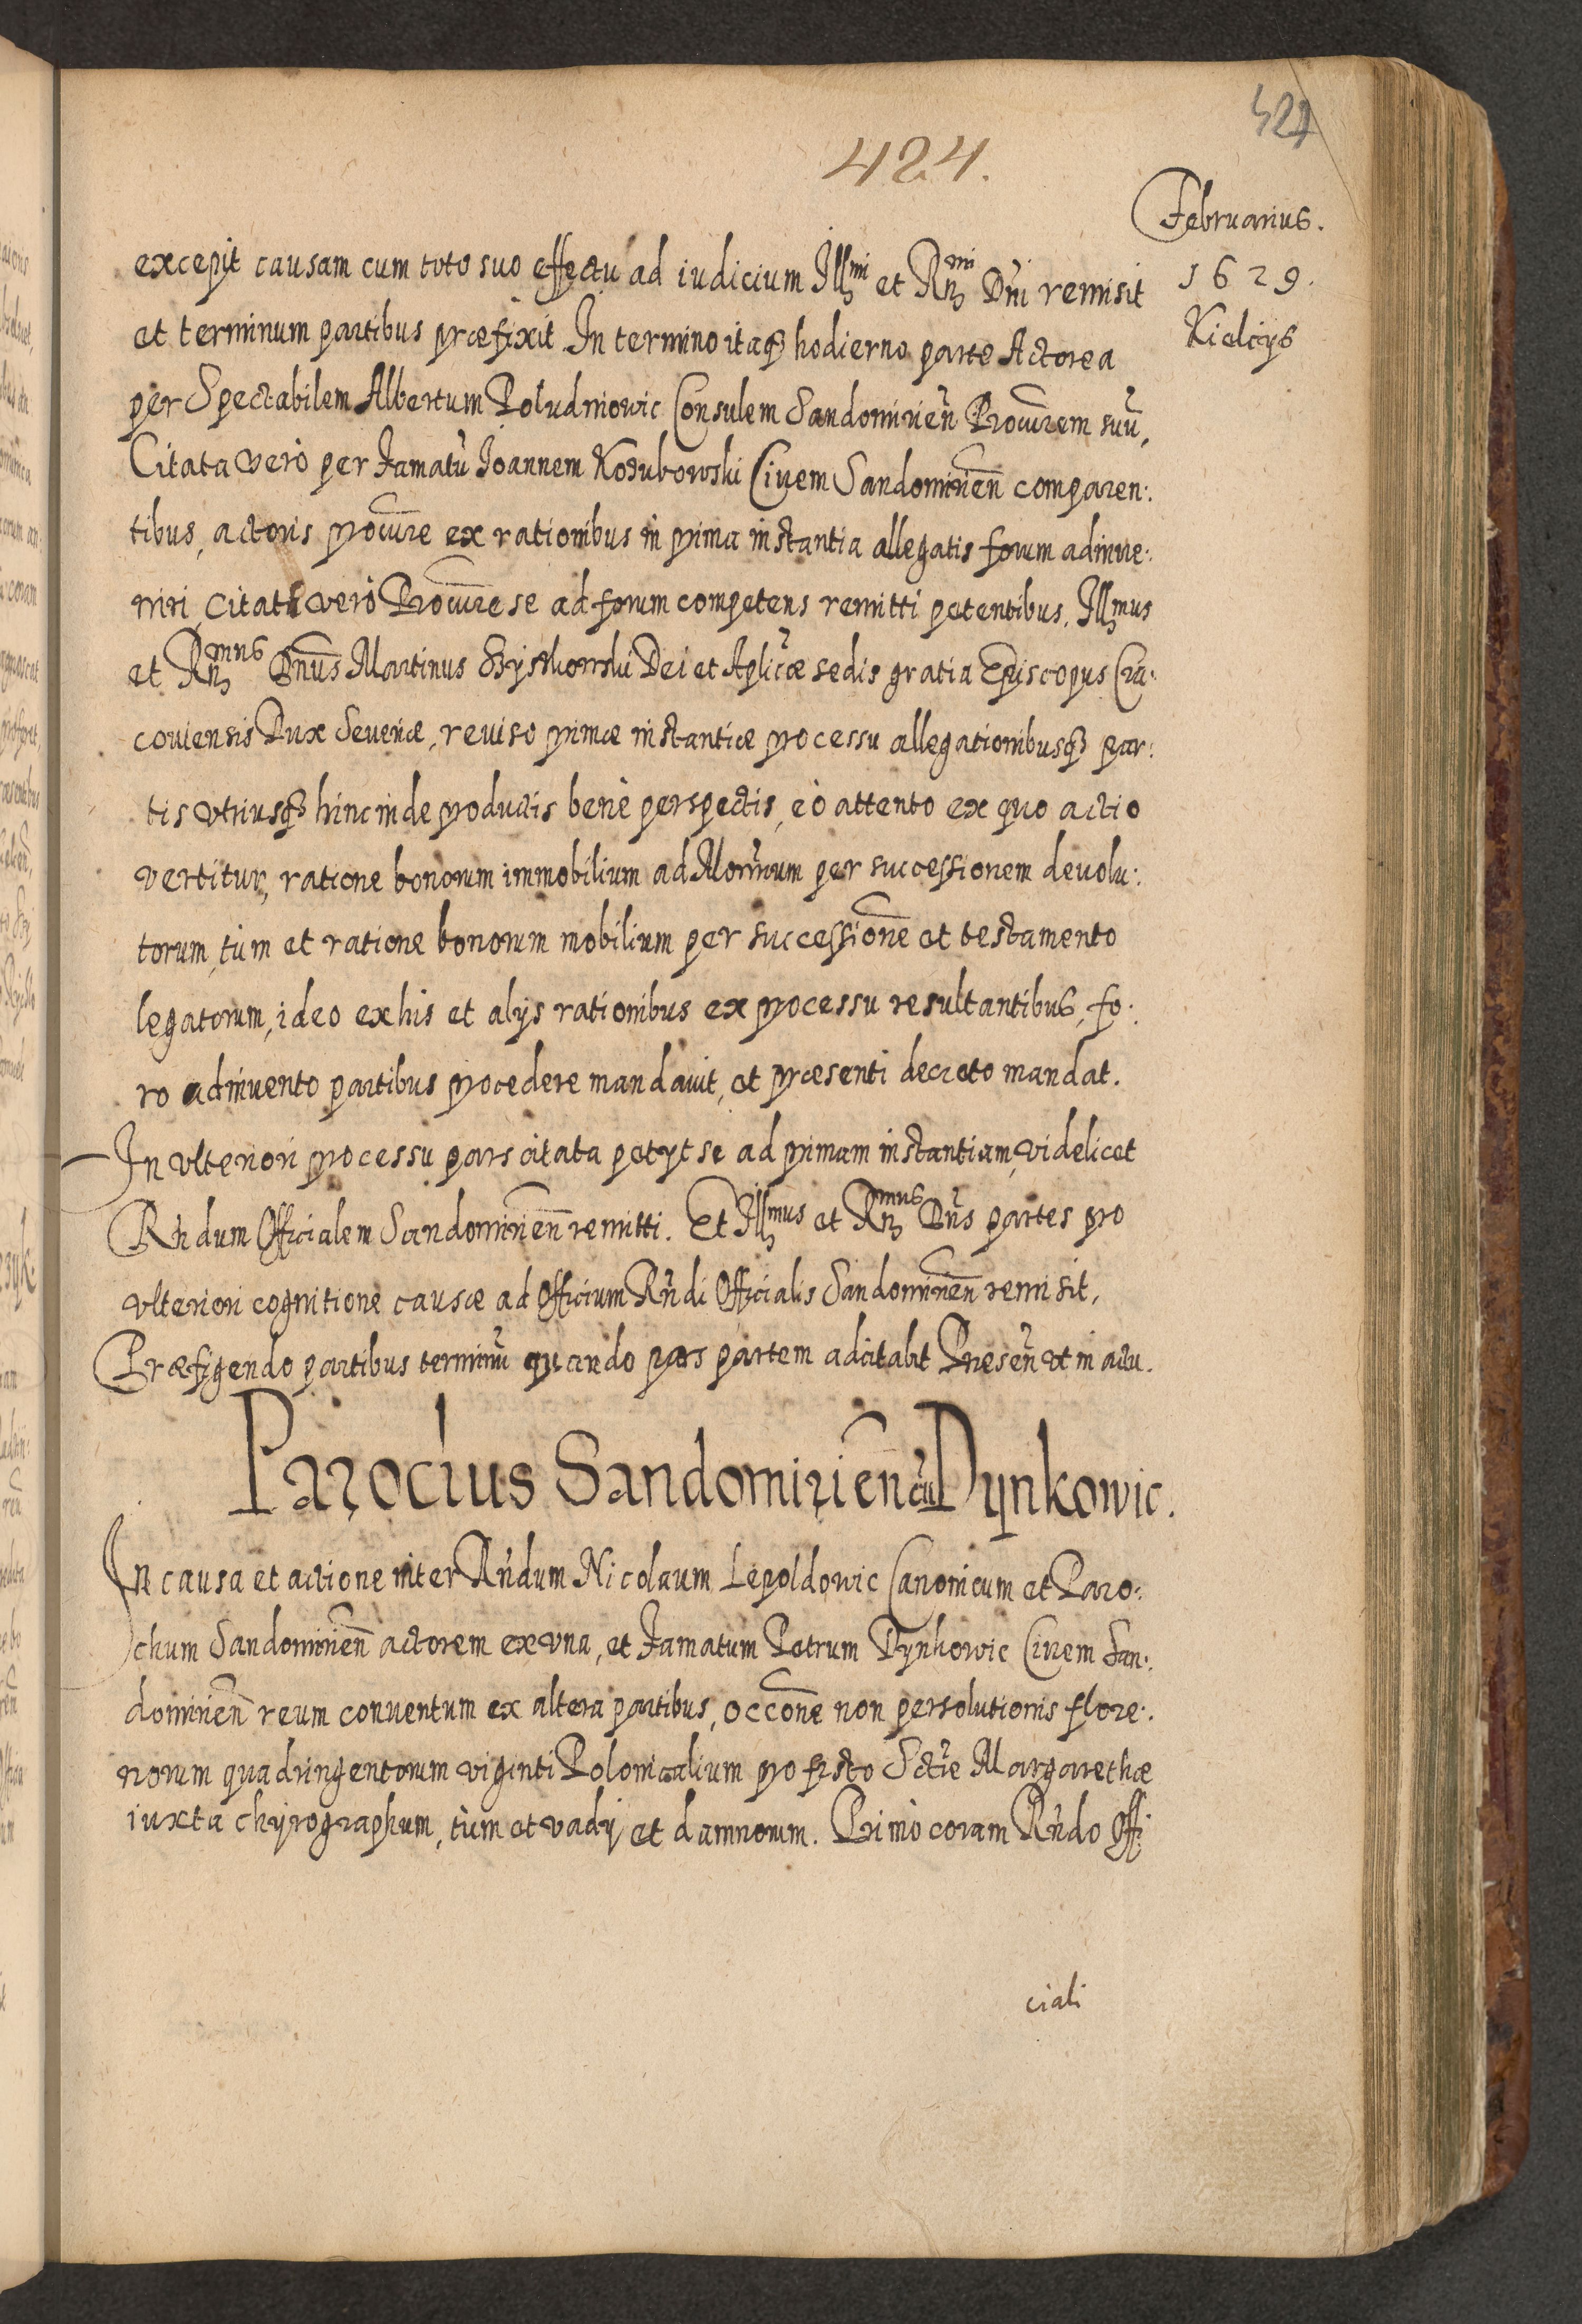 424.
421
Februarius.
1629.
Kielcijs
excepit causam cum toto suo effectu ad iudicium Illmi et Rmi Dni remisit
et terminum partibus præfixit In termino itaq hodierno parte Actorea
per Spectabilem Albertum Poludniowic Consulem Sandomirien̄ Procurem suū,
Citata verò per Famatū Joannem Kozubowski Civem Sandomirien̄ comparen:
tibus, actoris procure ex rationibus in prima instantia allegatis forum adinue:
niri, citati verò Procure se ad forum competens remitti petentibus, Illmus
et Rmus Dnus Martinus Szyszkowski Dei et Aplicæ sedis gratia Episcopus Cra:
couiensis Dux Seueriæ, reuiso primæ instantiæ processu allegationibusq par:
tis vtriusq hinc inde productis benè perspectis, eò attento ex quo actio
vertitur, ratione bonorum immobilium ad Monrium per successionem deuolu:
torum, tùm et ratione bonorum mobilium per successione et testamento
legatorum, ideo ex his et alijs rationibus ex processu resultantibus, fo:
ro adinuento partibus procedere mandauit, et præsenti decreto mandat.
In vlteriori processu pars citata petijt se ad primam instantiam, videlicet
Rndum Officialem Sandomirien̄ remitti. Et Illmus et Rmus Dns partes pro
vlteriori cognitione causæ ad Officium Rndi Officialis Sandomirien̄ remisit,
Præfigendo partibus terminū quando pars partem adcitabit Presen̄ vt in actu.
Parochus Sandomirien̄ cū Dynkowic.
In causa et actione inter Rndum Nicolaum Lepoldowic Canonicum et Paro:
chum Sandomirien̄ actorem ex vna, et Famatum Petrum Dynkowic Civem San:
domirien̄ reum conuentum ex altera partibus, occone non persolutionis flore:
norum quadringentorum viginti Polonicalium pro festo Sctæ Margarethæ
iuxta chyrographum, tùm et vadij et damnorum. Primò coram Rndo Offi:
ciali